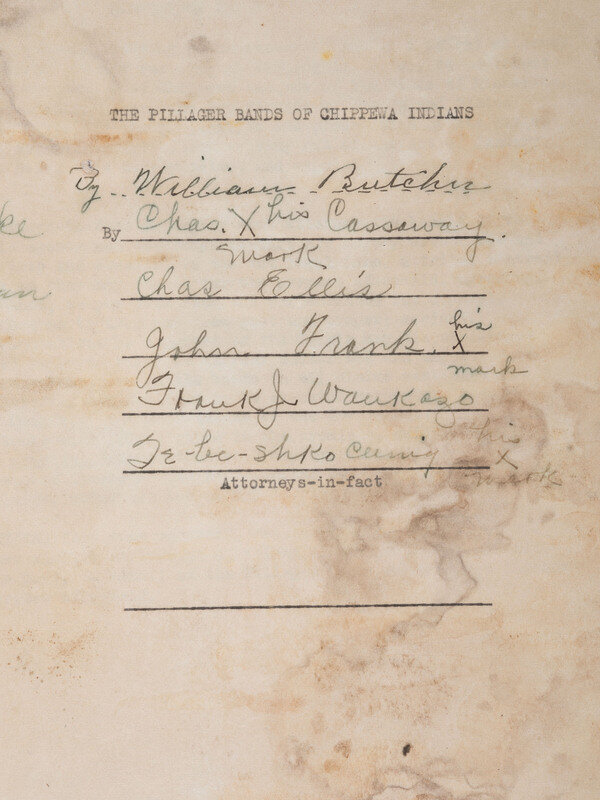 THE PILLAGER BANDS OF CHIPPEWA INDIANS
By William Butcher
By Chas. X his Cassaway.
mark
Chas Ellis
John Frank. his
X
mark
Frank J Waukazo
his
Te-be-shko cumig X
mark
Attorneys-in-fact